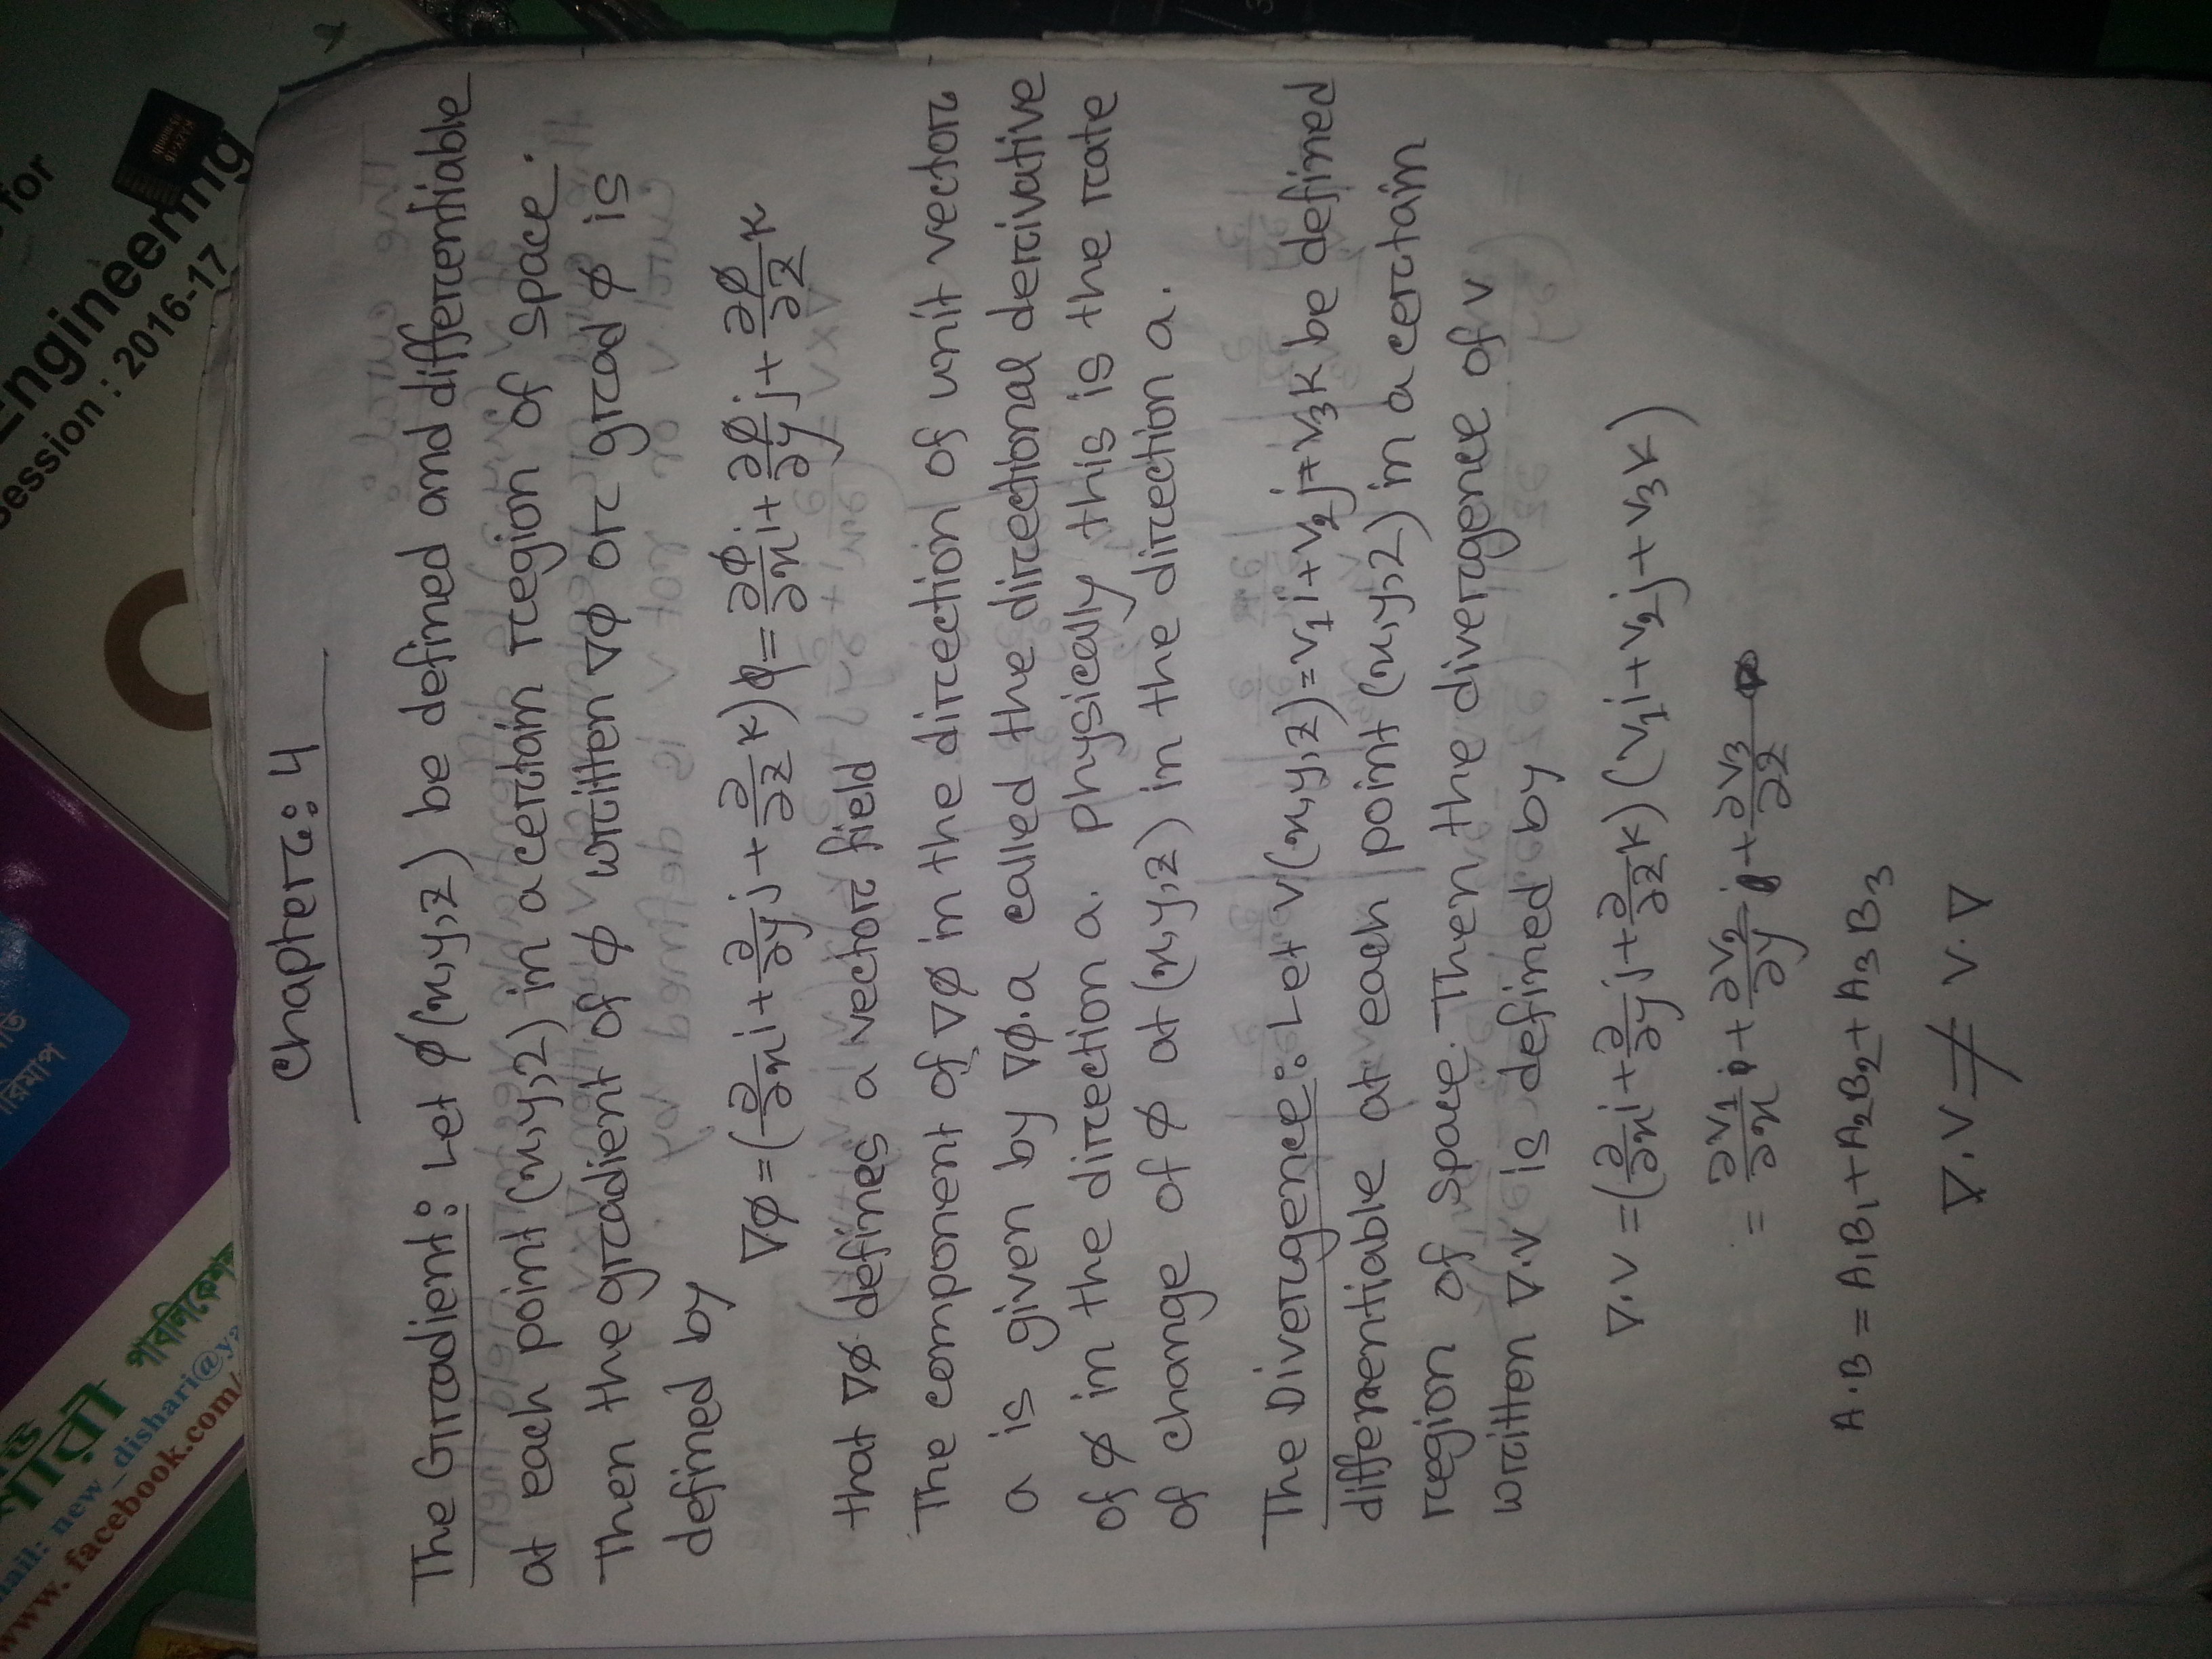 পাবলিকেশন্স
new_dishari@ya
www.facebook.com/
রিমাপ
for
Engineering
Session : 2016-17
Chapter: 4
The Gradient: Let φ(x,y,z) be defined and differentiable
at each point (x,y,z) in a certain region of space.
Then the gradient of φ written ∇φ or grad φ is
defined by
∇φ=(∂/∂x i+∂/∂y j+∂/∂z k)φ=∂φ/∂x i+∂φ/∂y j+∂φ/∂z k
that ∇φ defines a vector field
The component of ∇φ in the direction of unit vector
a is given by ∇φ.a called the directional derivative
of φ in the direction a. physically this is the rate
of change of φ at (x,y,z) in the direction a.
The Divergence: Let V(x,y,z)=V₁i+V₂j+V₃k be defined
differentiable at each point (x,y,z) in a certain
region of space. Then the divergence of v
written ∇.v is defined by
∇.V =(∂/∂x i+∂/∂y j+∂/∂z k) (V₁i+V₂j+V₃k)
= ∂V₁/∂x + ∂V₂/∂y + ∂V₃/∂z
A.B = A₁B₁+A₂B₂+A₃B₃
∇.V ≠ V.∇